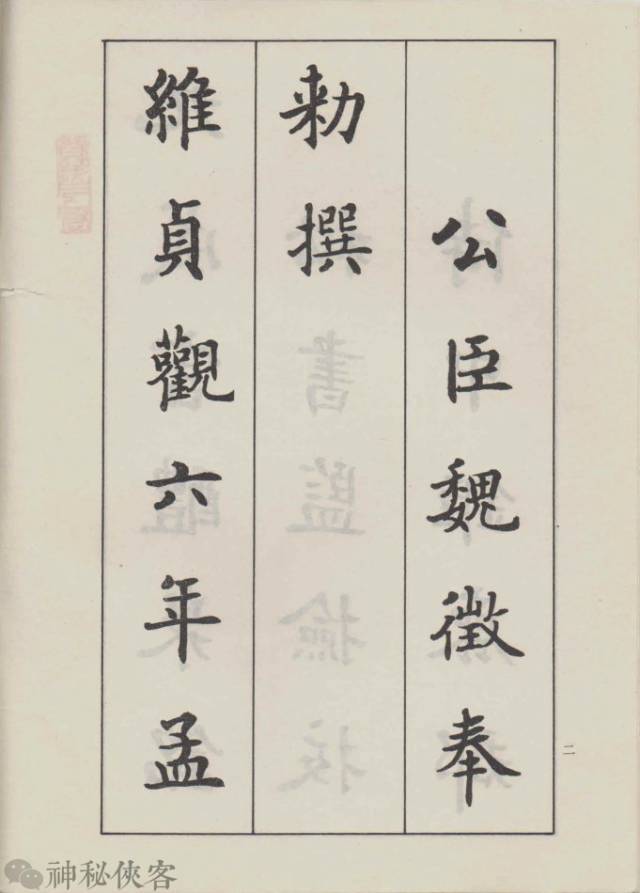 公臣魏徵奉
勅撰
維貞觀六年孟
二
神秘俠客